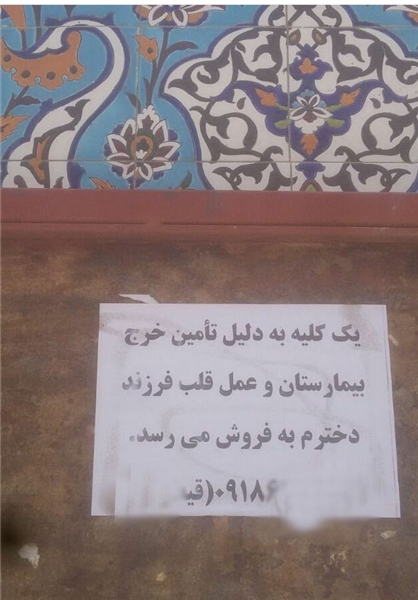 یک کلیه به دلیل تأمین خرج
بیمارستان و عمل قلب فرزند
دخترم به فروش می رسد.